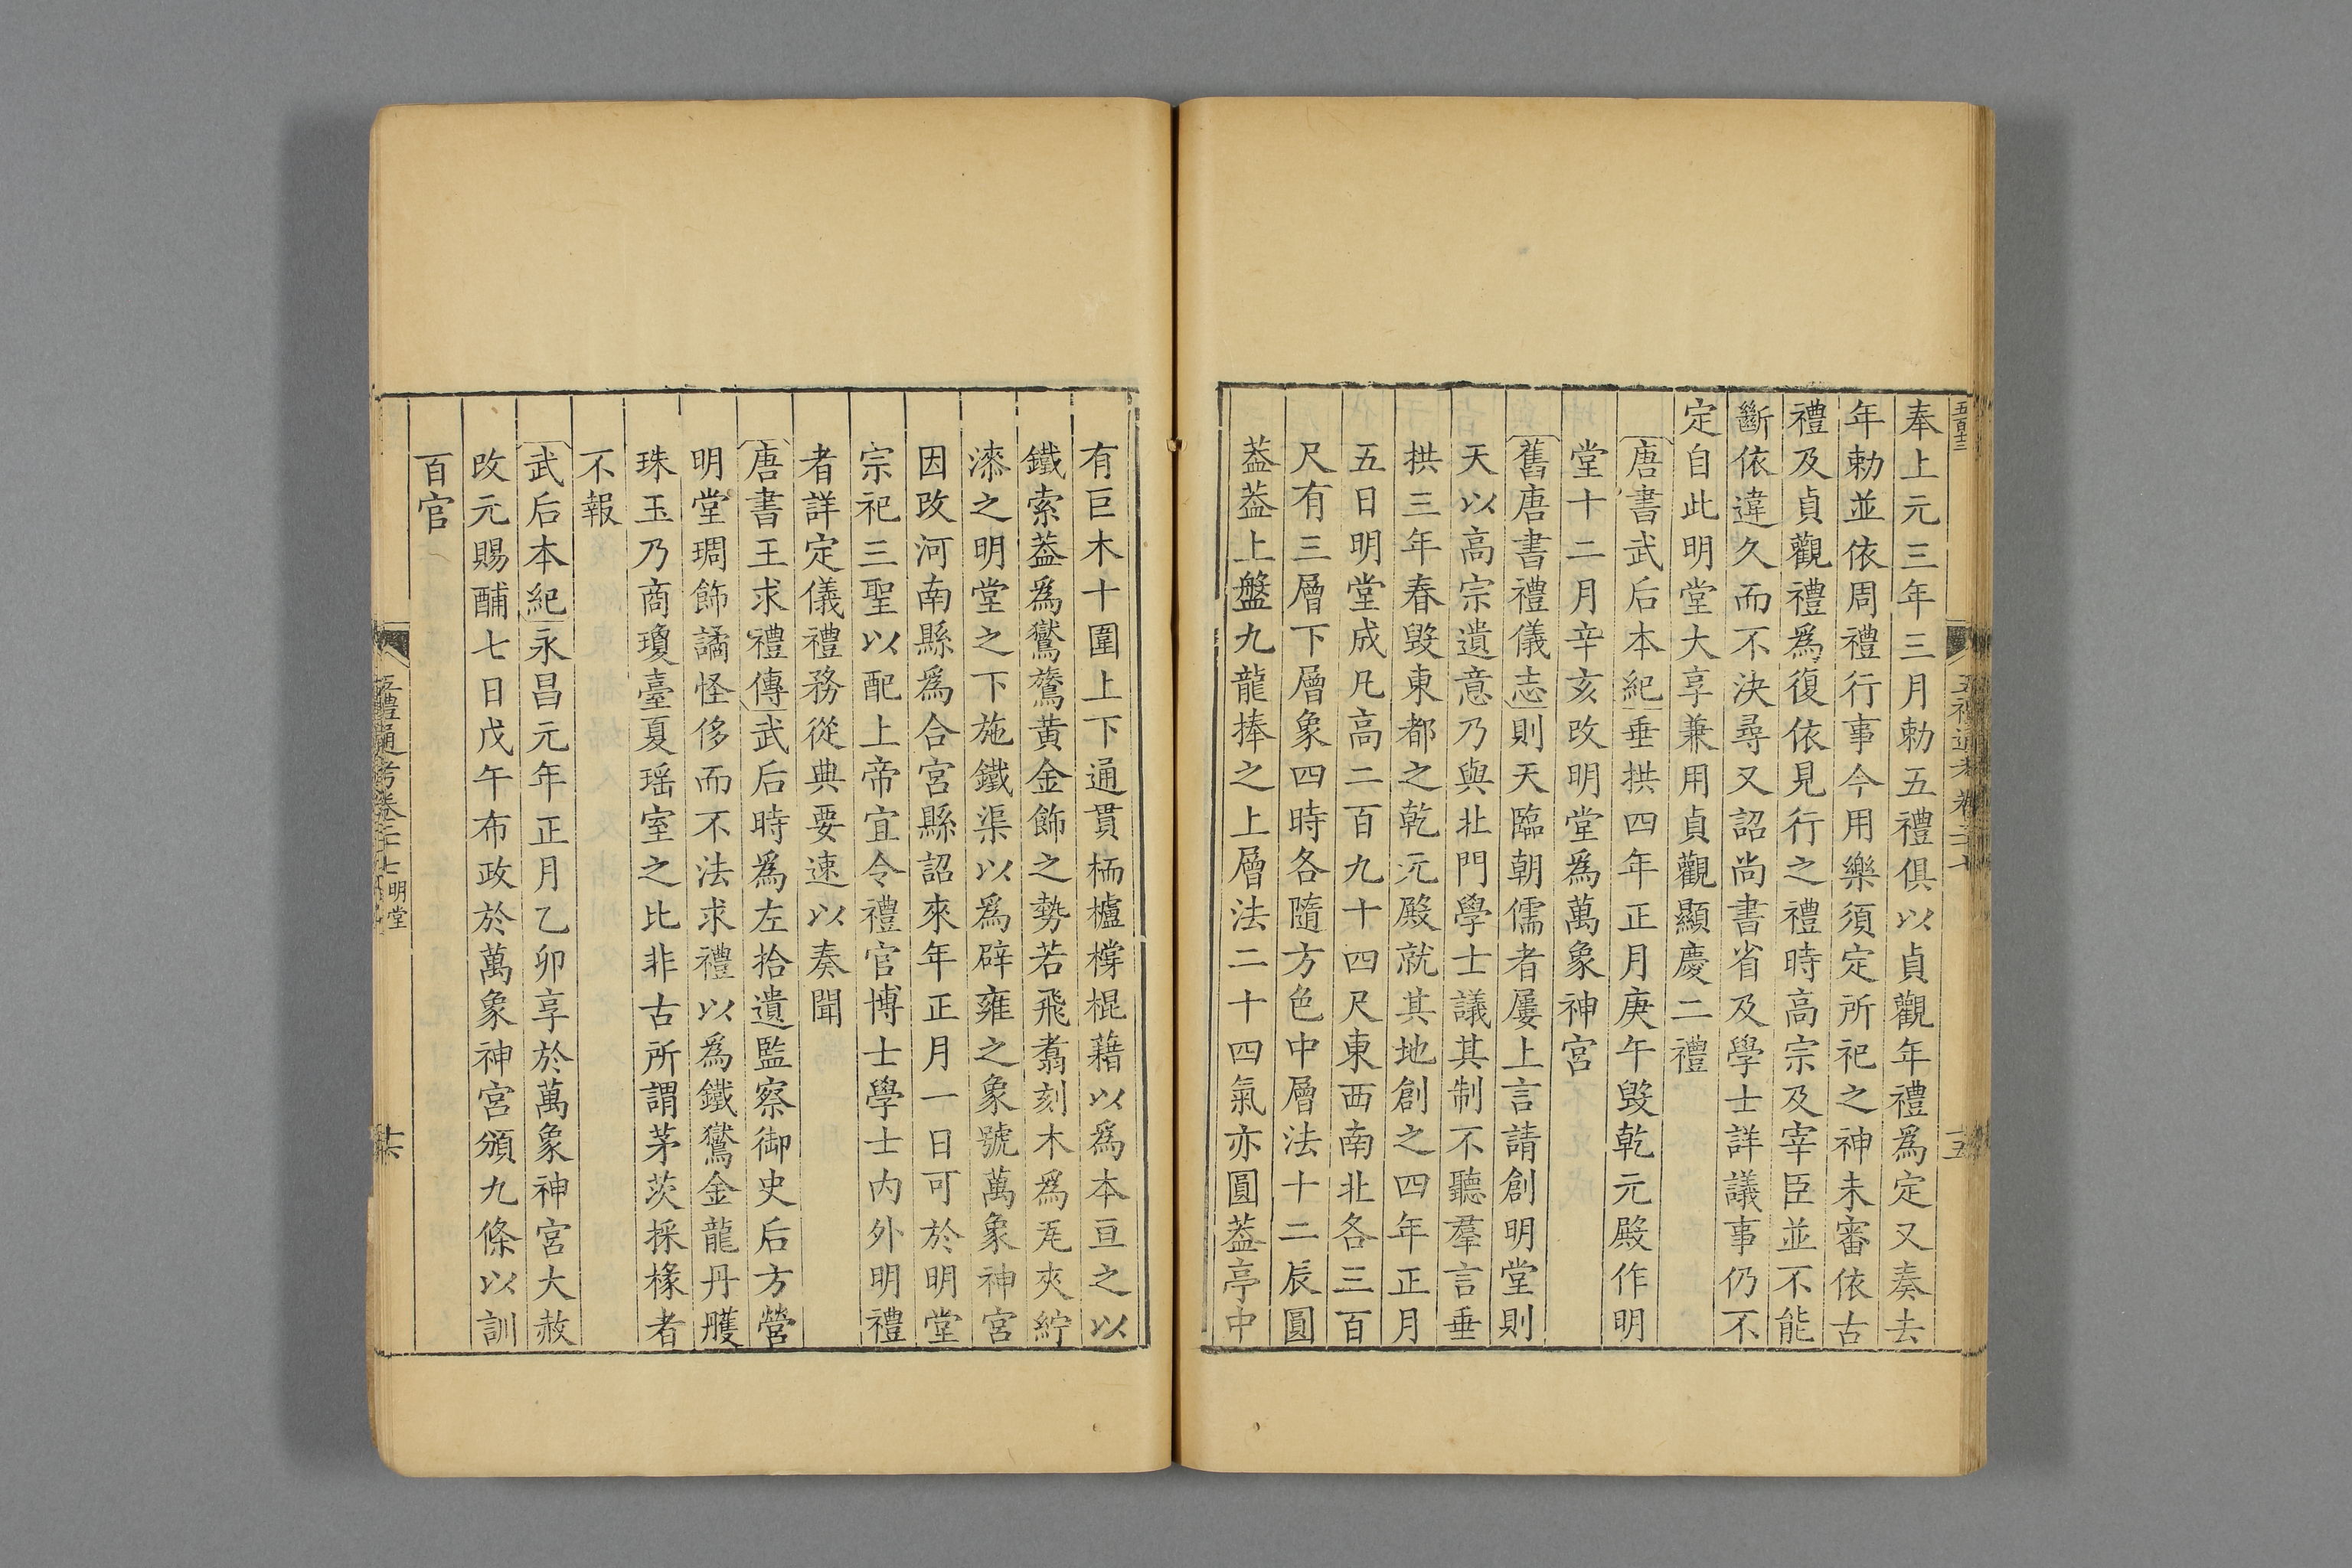 五禮通考卷二十七
十五
奉上元三年三月勅五禮俱以貞觀年禮爲定又奏去
年勅並依周禮行事今用樂須定所祀之神未審依古
禮及貞觀禮爲復依見行之禮時高宗及宰臣並不能
斷依違久而不決尋又詔尚書省及學士詳議事仍不
定自此明堂大享兼用貞觀顯慶二禮
唐書武后本紀垂拱四年正月庚午毀乾元殿作明
堂十二月辛亥改明堂爲萬象神宮
舊唐書禮儀志則天臨朝儒者屢上言請創明堂則
天以高宗遺意乃與北門學士議其制不聽羣言垂
拱三年春毀東都之乾元殿就其地創之四年正月
五日明堂成凡高二百九十四尺東西南北各三百
尺有三層下層象四時各隨方色中層法十二辰圓
葢葢上盤九龍捧之上層法二十四氣亦圓葢亭中
有巨木十圍上下通貫栭櫨橕棍藉以爲本亘之以
鐵索葢爲鸑鷟黄金飾之勢若飛翥刻木爲瓦夾紵
漆之明堂之下施鐵渠以爲辟雍之象號萬象神宮
因改河南縣爲合宮縣詔來年正月一日可於明堂
宗祀三聖以配上帝宜令禮官博士學士内外明禮
者詳定儀禮務從典要速以奏聞
唐書王求禮傳武后時爲左拾遺監察御史后方營
明堂琱飾譎怪侈而不法求禮以爲鐵鸑金龍丹雘
珠玉乃商瓊臺夏瑶室之比非古所謂茅茨採椽者
不報
武后本紀永昌元年正月乙卯享於萬象神宮大赦
改元賜酺七日戊午布政於萬象神宮頒九條以訓
百官
五禮通考卷二十七 明堂
十六